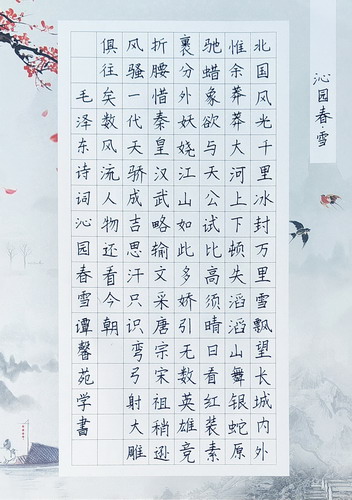 沁园春雪
北国风光千里冰封万里雪飘望长城内外
惟余莽莽大河上下顿失滔滔山舞银蛇原
驰蜡象欲与天公试比高须晴日看红装素
裹分外妖娆江山如此多娇引无数英雄竞
折腰惜秦皇汉武略输文采唐宗宋祖稍逊
风骚一代天骄成吉思汗只识弯弓射大雕
俱往矣数风流人物还看今朝
毛泽东诗词沁园春雪谭馨苑学書